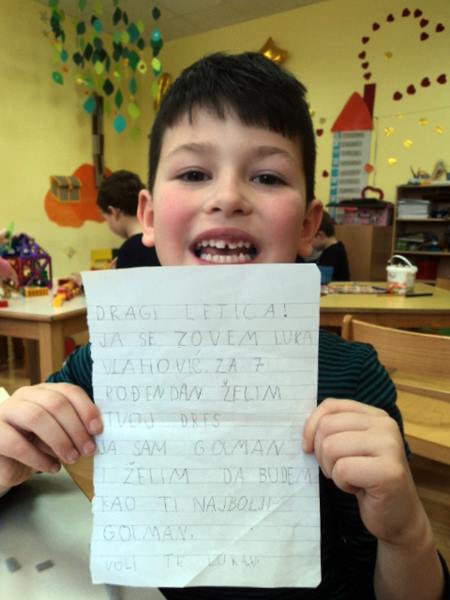 DRAGI LETICA!
JA SE ZOVEM LUKA
VLAHOVIĆ. ZA 7
ROĐENDAN ŽELIM
TVOJ DRES
JA SAM GOLMAN
I ŽELIM DA BUDEM
KAO TI NAJBOLJI
GOLMAN.
VOLI TE LUKA